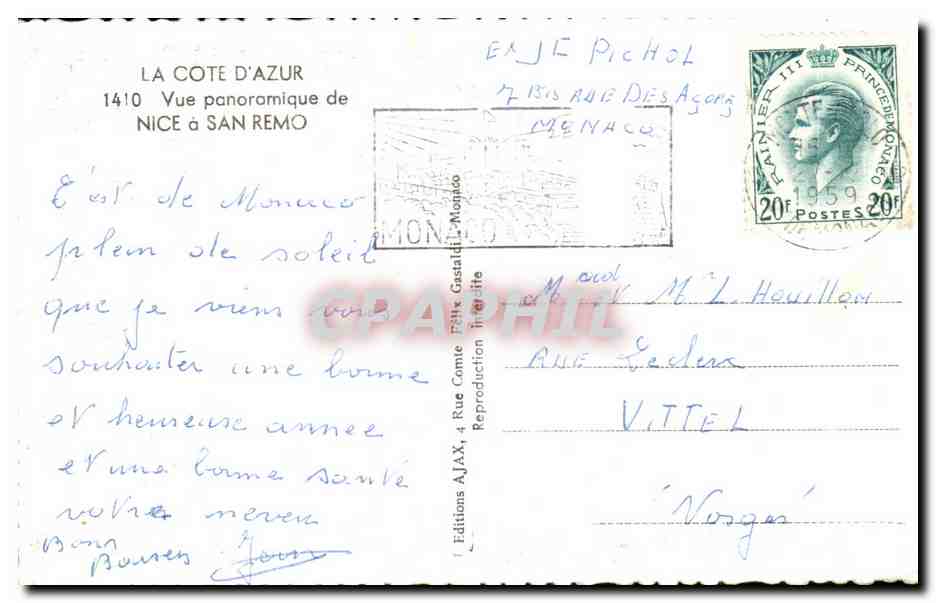 LA COTE D'AZUR
1410 Vue panoramique de
NICE à SAN REMO
PICHOL
7 BIS RUE DES AÇORES
MONACO
MONACO
RAINIER III PRINCE DE MONACO
1959
20F POSTES 20F
C'est de Monaco
plein de soleil
que je viens vous
souhaiter une bonne
et heureuse année
et une bonne santé
votre neveu
Bons
Baisers
Editions AJAX, 4 Rue Comte Félix Gastaldi - Monaco
Reproduction Interdite
CPAPHIL
et Mme L. Houillon
RUE Leclerc
VITTEL
Vosges